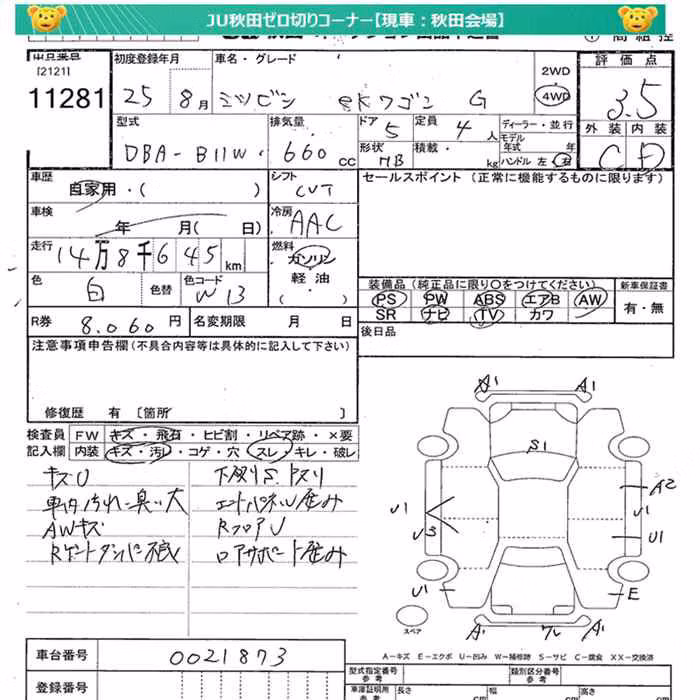 JU秋田ゼロ切りコーナー【現車：秋田会場】
[2121]
11281
初度登録年月
25 8月
車名・グレード
ミツビシ eKワゴン G
2WD
4WD
評価点
3.5
外装 内装
C D
型式
DBA-B11W
排気量
660 cc
ドア
5
定員
4人
形状
HB
積載
kg
ディーラー・並行
モデル
年式 年
ハンドル 左 右
車歴
自家用・( )
シフト
CVT
セールスポイント（正常に機能するものに限ります）
車検
年 月( 日)
冷房
AAC
走行
14万8千645km
燃料
ガソリン
軽油
( )
色
白
色替
色コード
W13
装備品（純正品に限り○をつけてください）
新車保証書
PS PW ABS エアB AW
SR ナビ TV カワ
有・無
R券 8.060円
名変期限 月 日
後日品
注意事項申告欄(不具合内容等は具体的に記入して下さい)
修復歴 有 〔箇所 〕
検査員 FW キズ・飛石・ヒビ割・リペア跡・×要
記入欄 内装 キズ・汚れ・コゲ・穴 スレ・キレ・破レ
キズU
車内汚れ・臭い大
AWキズ
下廻りS.
RフロアU
A1
A1
S1
A2
U1
U1
U3
U1
U1
E
A1
A1
スペア
A－キズ E－エクボ U－凹み W－補修跡 S－サビ C－腐食 XX－交換済
車台番号
0021873
登録番号
型式指定番号
参考
類別区分番号
参考
車庫証明用
参考
長さ
cm
幅
cm
高さ
cm